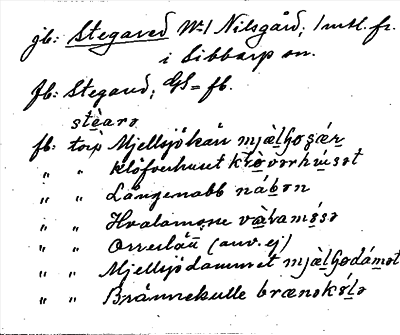 jb: Stegared W:1 Nilsgård, 1 mtl. fr.
i Sibbarp sn.
fb: Stegard; GS = fb.
stèarə
fb: torp Mjellsjökärr mjæ̀lʃoʃær
" " klöfverhuset kløvərhúsət
" " Långenabb nábən
" " Hvalamosse vàlamòsə
" " Orreslätt (anv. ej)
" " Mjellsjödammet mjæ̀lʃodámət
" " Brännekulle brænəkùlə